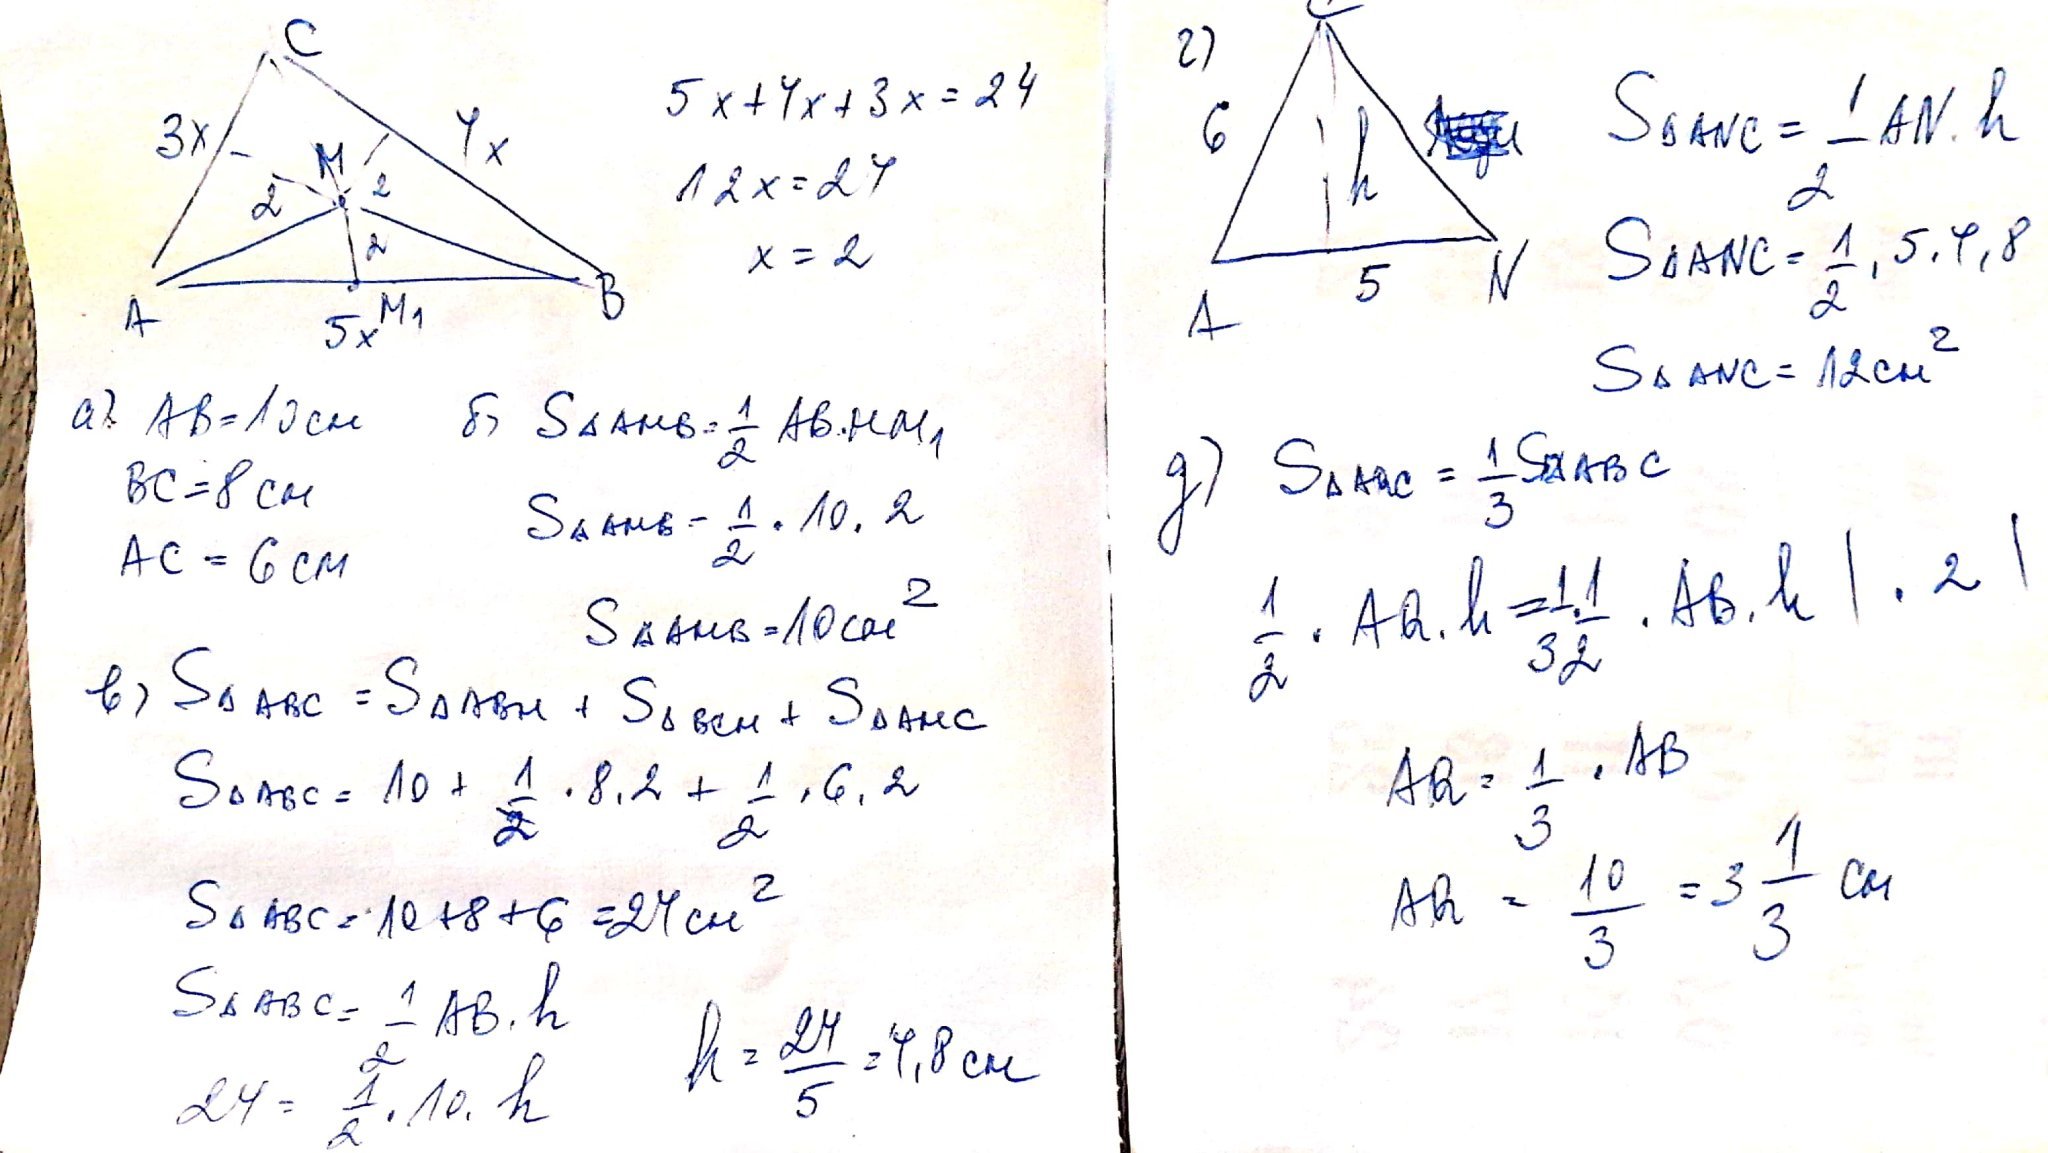 C
3x
4x
M
2
2
2
A
M₁
B
5x
5x+4x+3x=24
12x=24
x=2
а) AB=10см
BC=8см
AC=6см
б) S△AMB=1/2 AB.MM₁
S△AMB=1/2.10.2
S△AMB=10см²
в) S△ABC=S△ABM+S△BCM+S△AMC
S△ABC=10+1/2.8.2+1/2.6.2
S△ABC=10+8+6=24см²
S△ABC=1/2 AB.h
24=1/2.10.h
h=24/5=4,8см
г)
C
6
h
5
A
N
S△ANC=1/2 AN.h
S△ANC=1/2.5.4,8
S△ANC=12см²
д) S△AQC=1/3 S△ABC
1/2.AQ.h=1/3.1/2.AB.h |.2|
AQ=1/3.AB
AQ=10/3=3 1/3 см